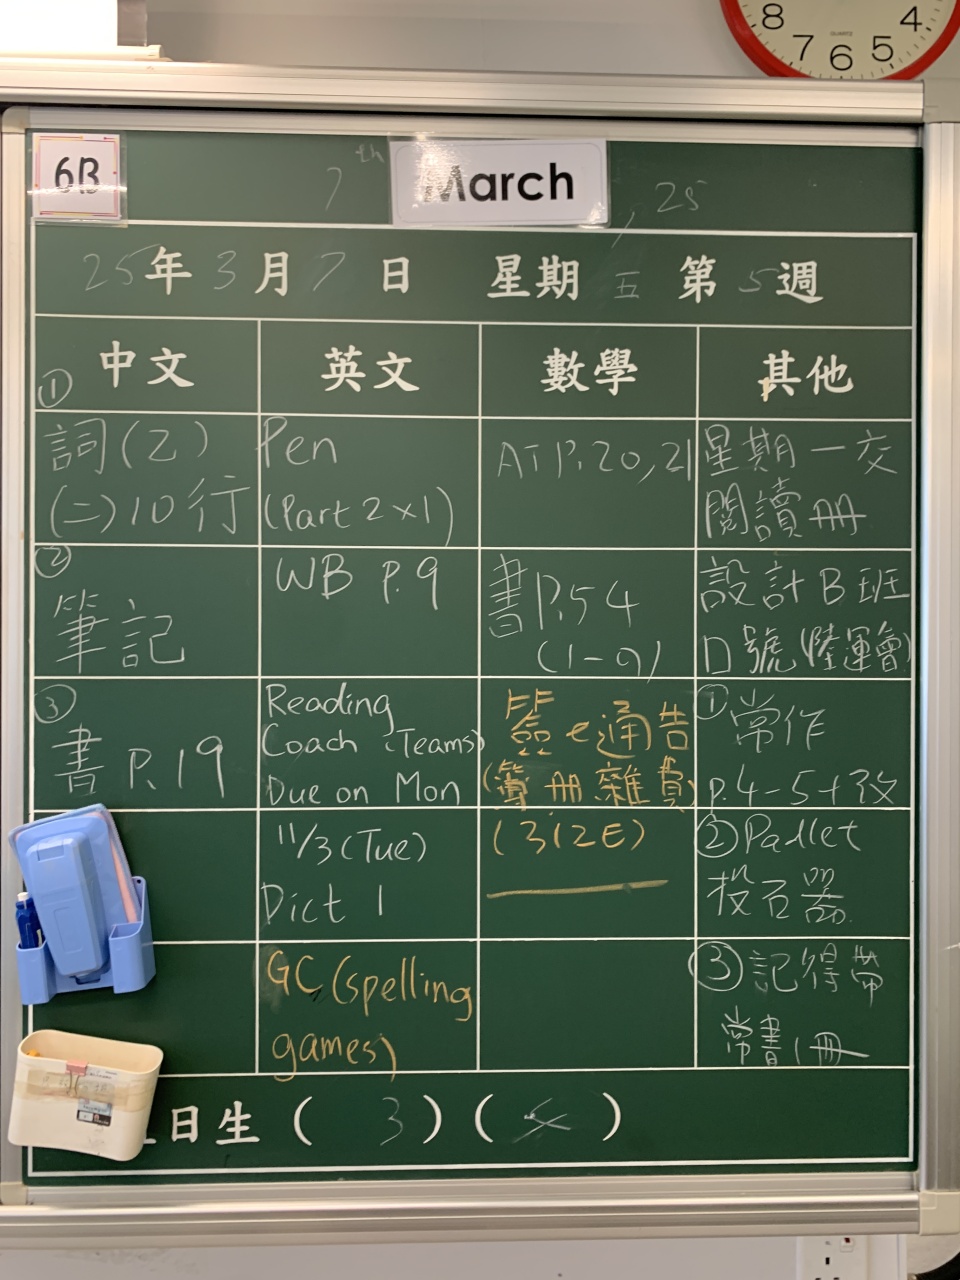 8 7 6 5 4
QUARTZ
6B
7th March, 25
25年3月7日 星期五 第5週
中文 英文 數學 其他
①
詞(乙)
(二)10行
②
筆記
③
書 P.19
Pen
(Part 2×1)
WB P.9
Reading
Coach (Teams)
Due on Mon
11/3 (Tue)
Dict 1
GC (spelling
games)
AT P.20,21
書 P.54
(1-9)
簽e通告
(簿冊雜費)
(312E)
星期一交
閱讀冊
設計B班
口號(陸運會)
①常作
P.4-5+改
②Padlet
投石器
③記得帶
常書1冊
日生 ( 3 ) ( )